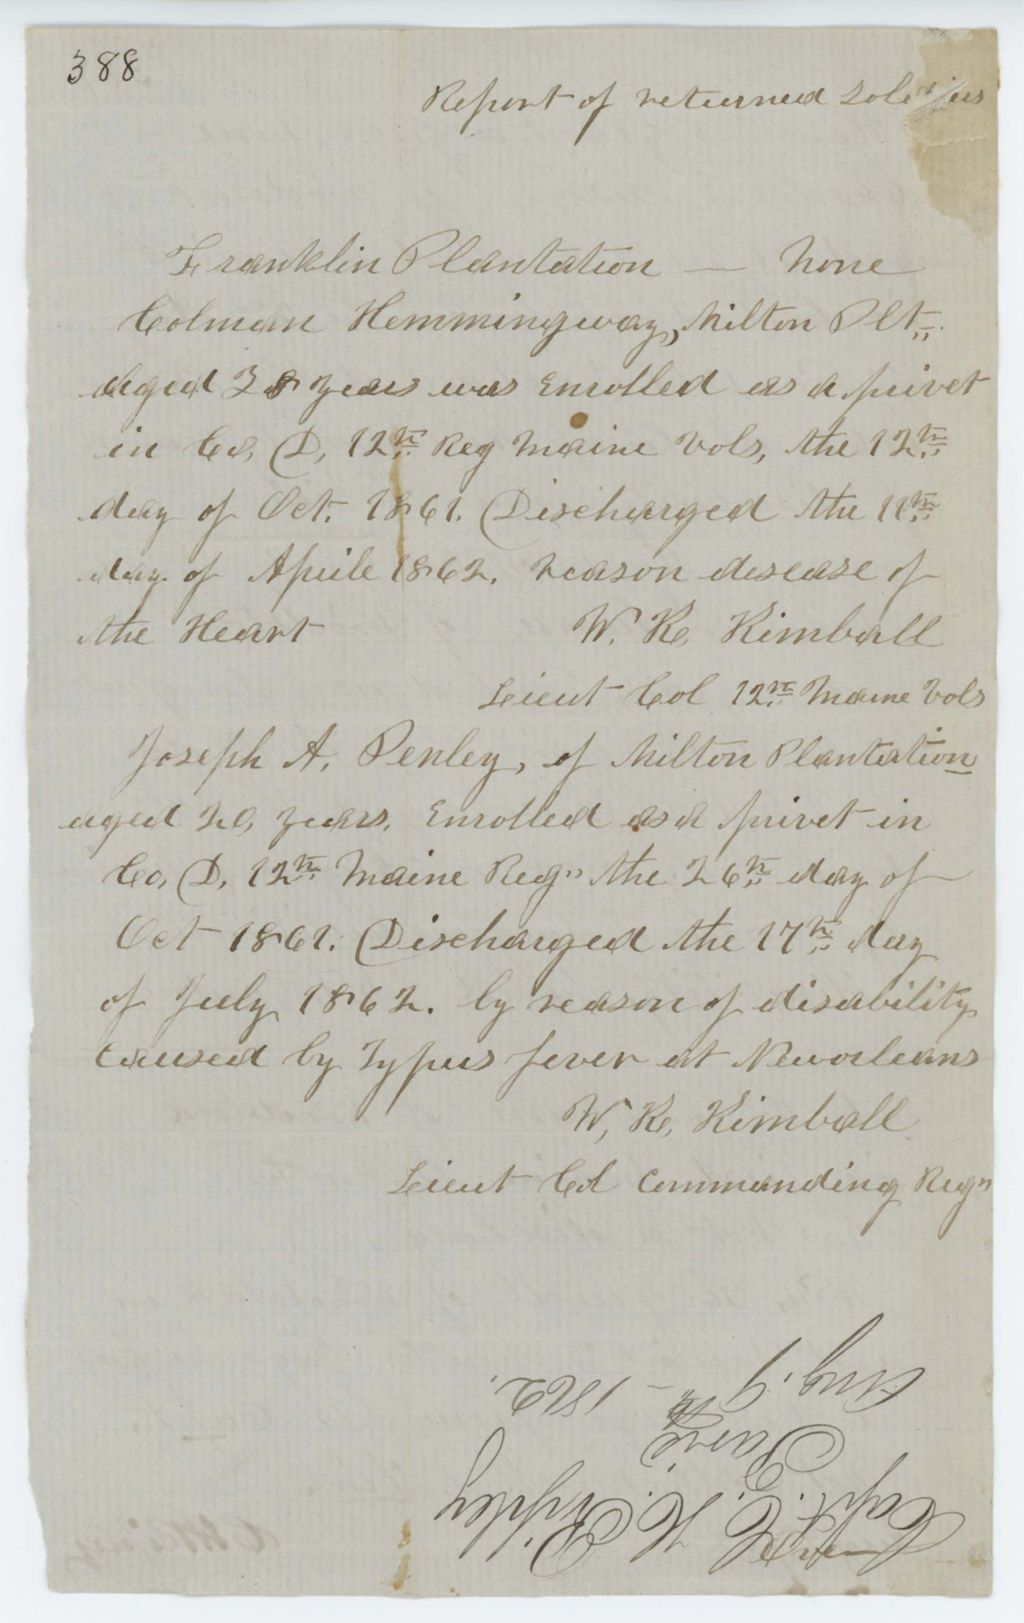 388
Report of returned Soldiers
Franklin Plantation — None
Colman Hemmingway, Milton Plt.
Aged 38 Years was Enrolled as a privet
in Co, D, 12th Reg Maine Vols, the 12th
day of Oct. 1861. Discharged the 11th
day of Aprile 1862. reason disease of
the Heart W. K. Kimball
Lieut Col 12th Maine Vols
Joseph A. Penley, of Milton Plantation
aged 20, years, Enrolled as a privet in
Co, D, 12th Maine Reg" the 26th day of
Oct 1861. Discharged the 17th day
of July 1862. by reason of disability
caused by Typus fever at Neworleans
W, K, Kimball
Lieut Col Commanding Reg"
From
Capt. C. K. Ripley
Paris
Aug. 9th - 1862.